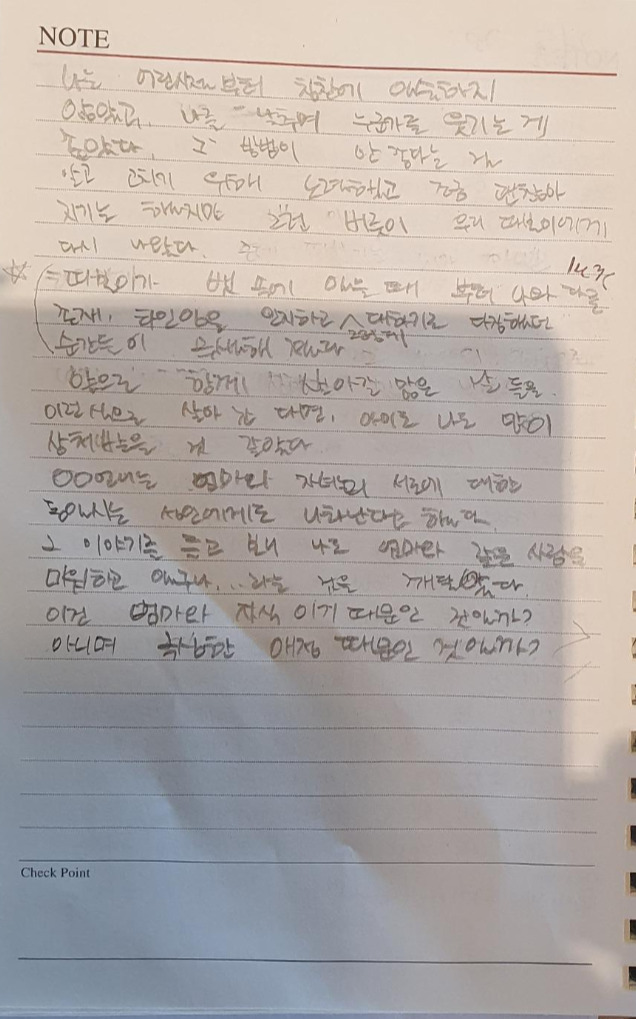 NOTE
나는 어린시절부터 칭찬에 익숙하지
않았고, 나를 낮추며 누군가를 웃기는 게
좋았다. 그 방법이 안 좋다는 걸
알고 고치기 위해 노력했고 조금 괜찮아
지기는 했지만 그런 버릇이 우리 따봉이에게
다시 나왔다.
따봉이가 뱃 속에 있는 때 부터 나와 다른
존재, 타인임을 인지하고 대하기로 다짐했던
순간들이 무색해 졌다
앞으로 함께 살아갈 많은 날 들을
이런 식으로 살아 간 다면, 아이도 나도 많이
상처받는을 것 같았다
OO언니는 엄마와 자녀의 서로에 대한
타인에게도 나타난다고 했다.
그 이야기를 듣고 보니 나도 엄마와 같은 사람을
미워하고 있구나... 라는 것을 깨달았다.
이건 엄마와 자식 이기 때문인 것일까?
아니며 애정 때문인 것일까?
Check Point